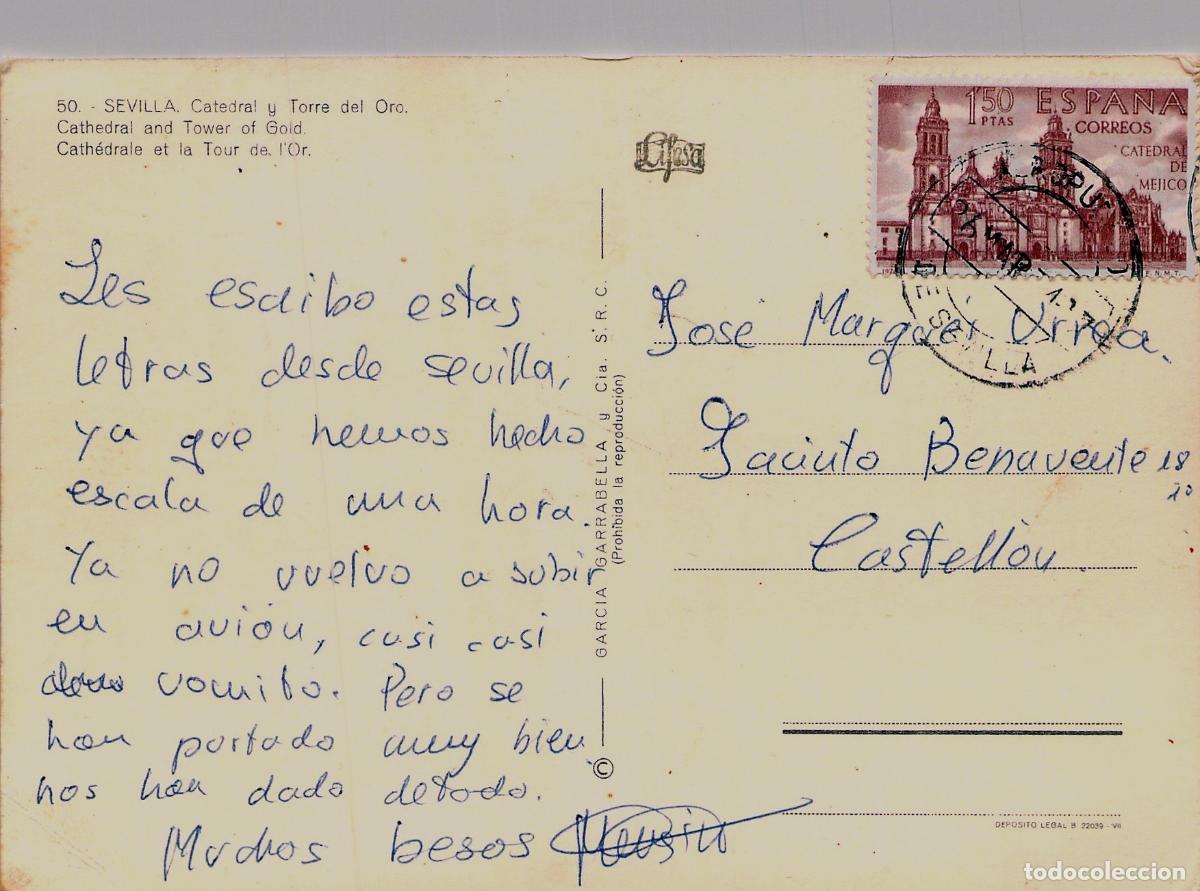 50. - SEVILLA. Catedral y Torre del Oro.
Cathedral and Tower of Gold.
Cathédrale et la Tour de l'Or.
Les escribo estas
letras desde sevilla,
ya que hemos hecho
escala de una hora.
Ya no vuelvo a subir
en avión, casi casi
vomito. Pero se
han portado muy bien
nos han dado de todo.
Muchos besos
GARCIA GARRABELLA y Cia. S. R. C.
(Prohibida la reproducción)
©
1'50 PTAS
ESPAÑA
CORREOS
CATEDRAL
DE
MEJICO
F.N.M.T.
SEVILLA
José Marqués Urrea.
Jacinto Benavente 18
Castellón.
DEPOSITO LEGAL B. 22039 - VII
todocoleccion